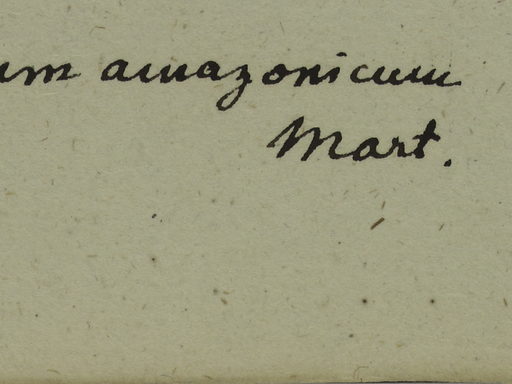 um amazonicum
Mart.